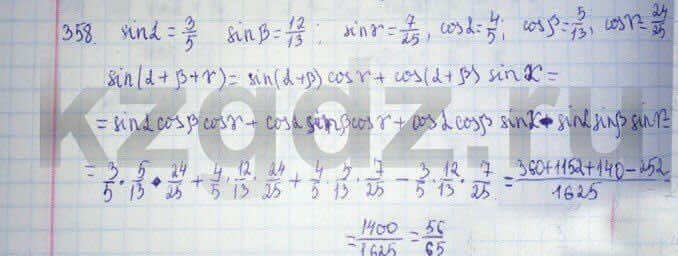 358. sinα = 3/5 sinβ = 12/13; sinγ = 7/25, cosα = 4/5; cosβ = 5/13; cosγ = 24/25
sin(α + β + γ) = sin(α+β) cosγ + cos(α+β) sinγ =
= sinα cosβ cosγ + cosα sinβ cosγ + cosα cosβ sinγ - sinα sinβ sinγ =
= 3/5 · 5/13 · 24/25 + 4/5 · 12/13 · 24/25 + 4/5 · 5/13 · 7/25 - 3/5 · 12/13 · 7/25 = (360+1152+140-252)/1625
= 1400/1625 = 56/65
kzgdz.ru